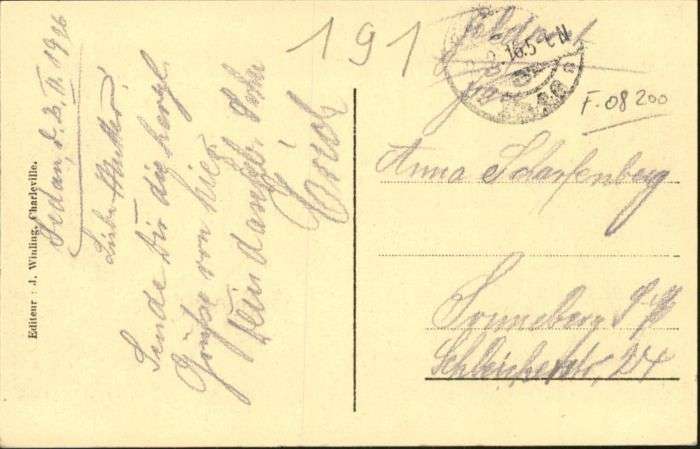 Editeur : J. Winling, Charleville.
Sedan, d. 3. II. 1916
Liebe Mutter!
Sende Dir die herzl.
Grüße von hier
Dein dankb. Sohn
Erich
191
Feldpost
16.5-6N
F.08200
Anna Scharfenberg
Sonneberg S/M
Schleicherstr, 24